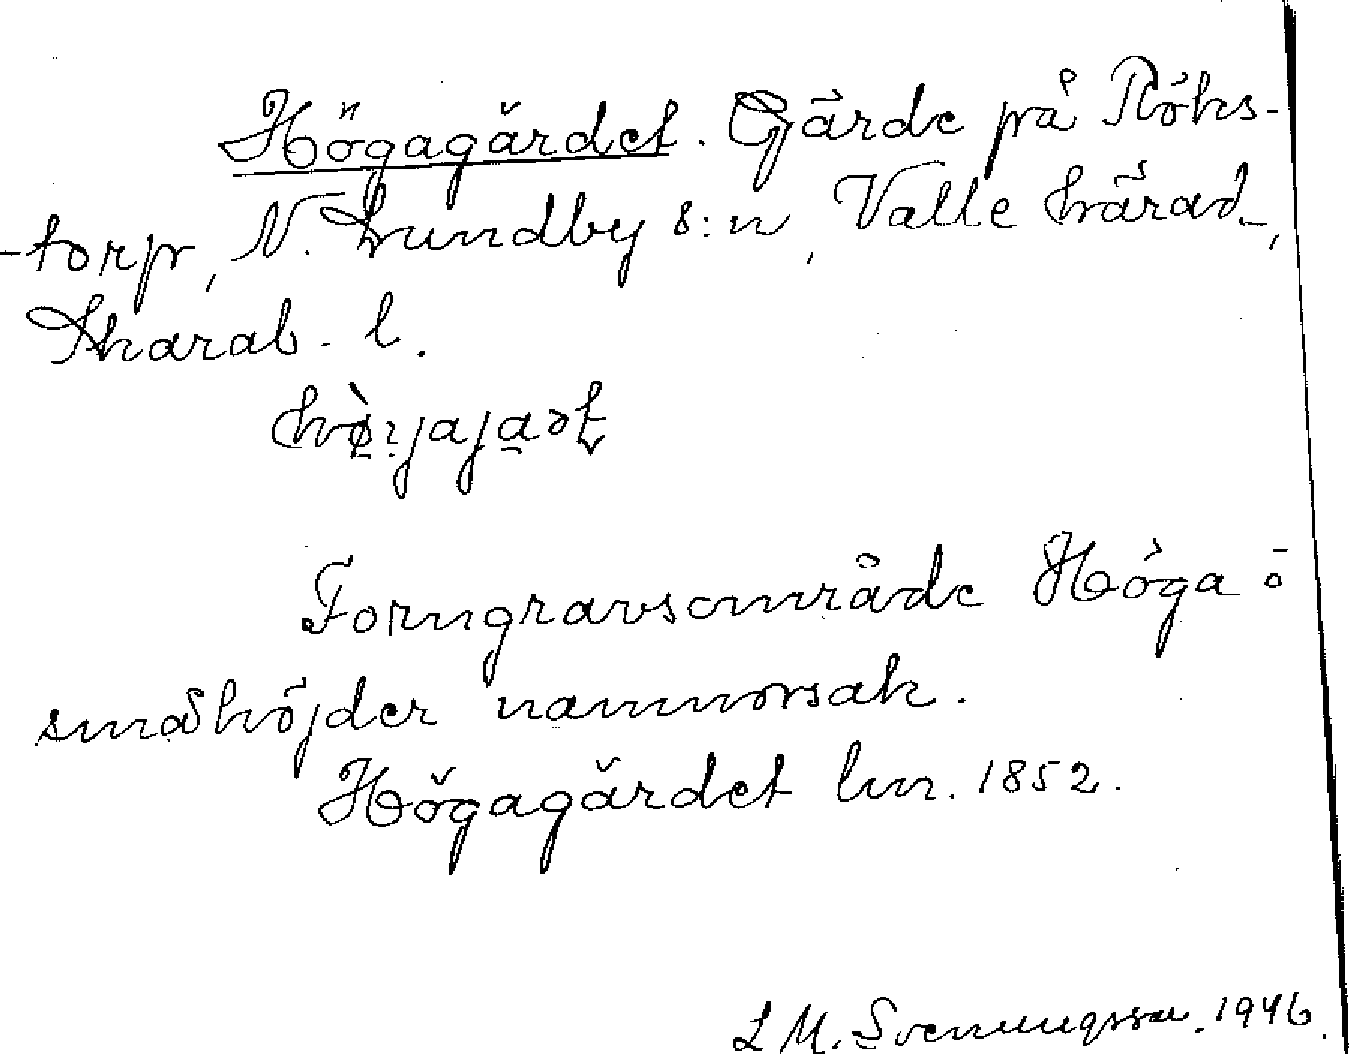 Högagärdet. Gärde på Röks-
torp, N. Lundby s:n, Valle härad,
Skarab. l.
Forngravsområde Höga =
småhöjder namnorsak.
Högagärdet lm. 1852.
L M. Svenungsson. 1946.